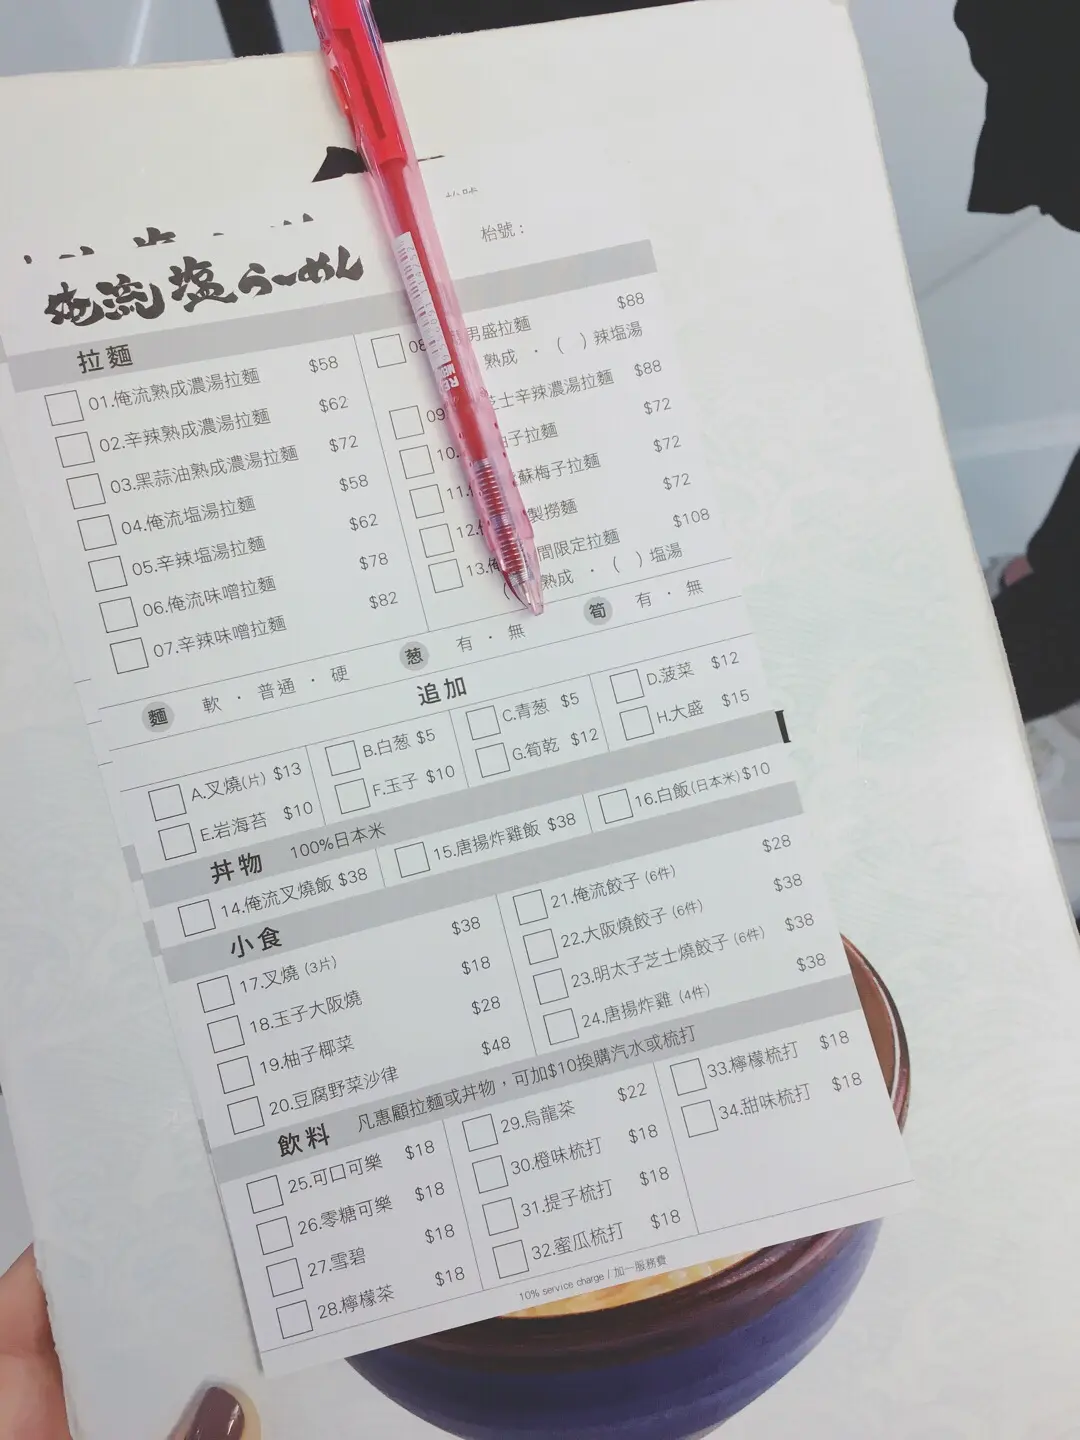 枱號：
俺流塩らーめん
拉麵
01.俺流熟成濃湯拉麵 $58
02.辛辣熟成濃湯拉麵 $62
03.黑蒜油熟成濃湯拉麵 $72
04.俺流塩湯拉麵 $58
05.辛辣塩湯拉麵 $62
06.俺流味噌拉麵 $78
07.辛辣味噌拉麵 $82
08 男盛拉麵 $88
熟成 ・ ( ) 辣塩湯
09 芝士辛辣濃湯拉麵 $88
10. 子拉麵 $72
11. 蘇梅子拉麵 $72
12. 製撈麵 $72
13.俺 間限定拉麵 $108
( 熟成 ・ ( ) 塩湯
麵 軟 ・ 普通 ・ 硬 葱 有 ・ 無 筍 有 ・ 無
追加
A.叉燒(片) $13 B.白葱 $5 C.青葱 $5 D.菠菜 $12
E.岩海苔 $10 F.玉子 $10 G.筍乾 $12 H.大盛 $15
丼物 100%日本米
14.俺流叉燒飯 $38 15.唐揚炸雞飯 $38 16.白飯(日本米) $10
小食
17.叉燒 (3片) $38
18.玉子大阪燒 $18
19.柚子椰菜 $28
20.豆腐野菜沙律 $48
21.俺流餃子 (6件) $28
22.大阪燒餃子 (6件) $38
23.明太子芝士燒餃子 (6件) $38
24.唐揚炸雞 (4件) $38
飲料 凡惠顧拉麵或丼物，可加$10換購汽水或梳打
25.可口可樂 $18
26.零糖可樂 $18
27.雪碧 $18
28.檸檬茶 $18
29.烏龍茶 $22
30.橙味梳打 $18
31.提子梳打 $18
32.蜜瓜梳打 $18
33.檸檬梳打 $18
34.甜味梳打 $18
10% service charge / 加一服務費